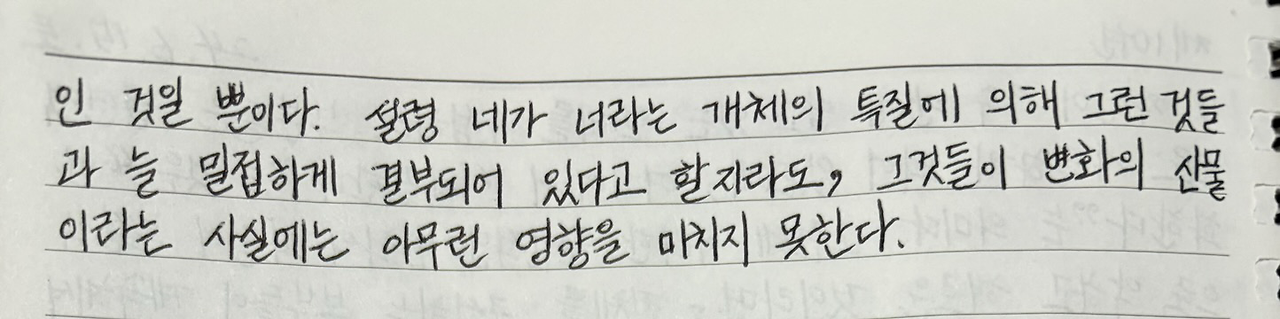 인 것일 뿐이다. 설령 네가 너라는 개체의 특질에 의해 그런 것들
과 늘 밀접하게 결부되어 있다고 할지라도, 그것들이 변화의 산물
이라는 사실에는 아무런 영향을 미치지 못한다.